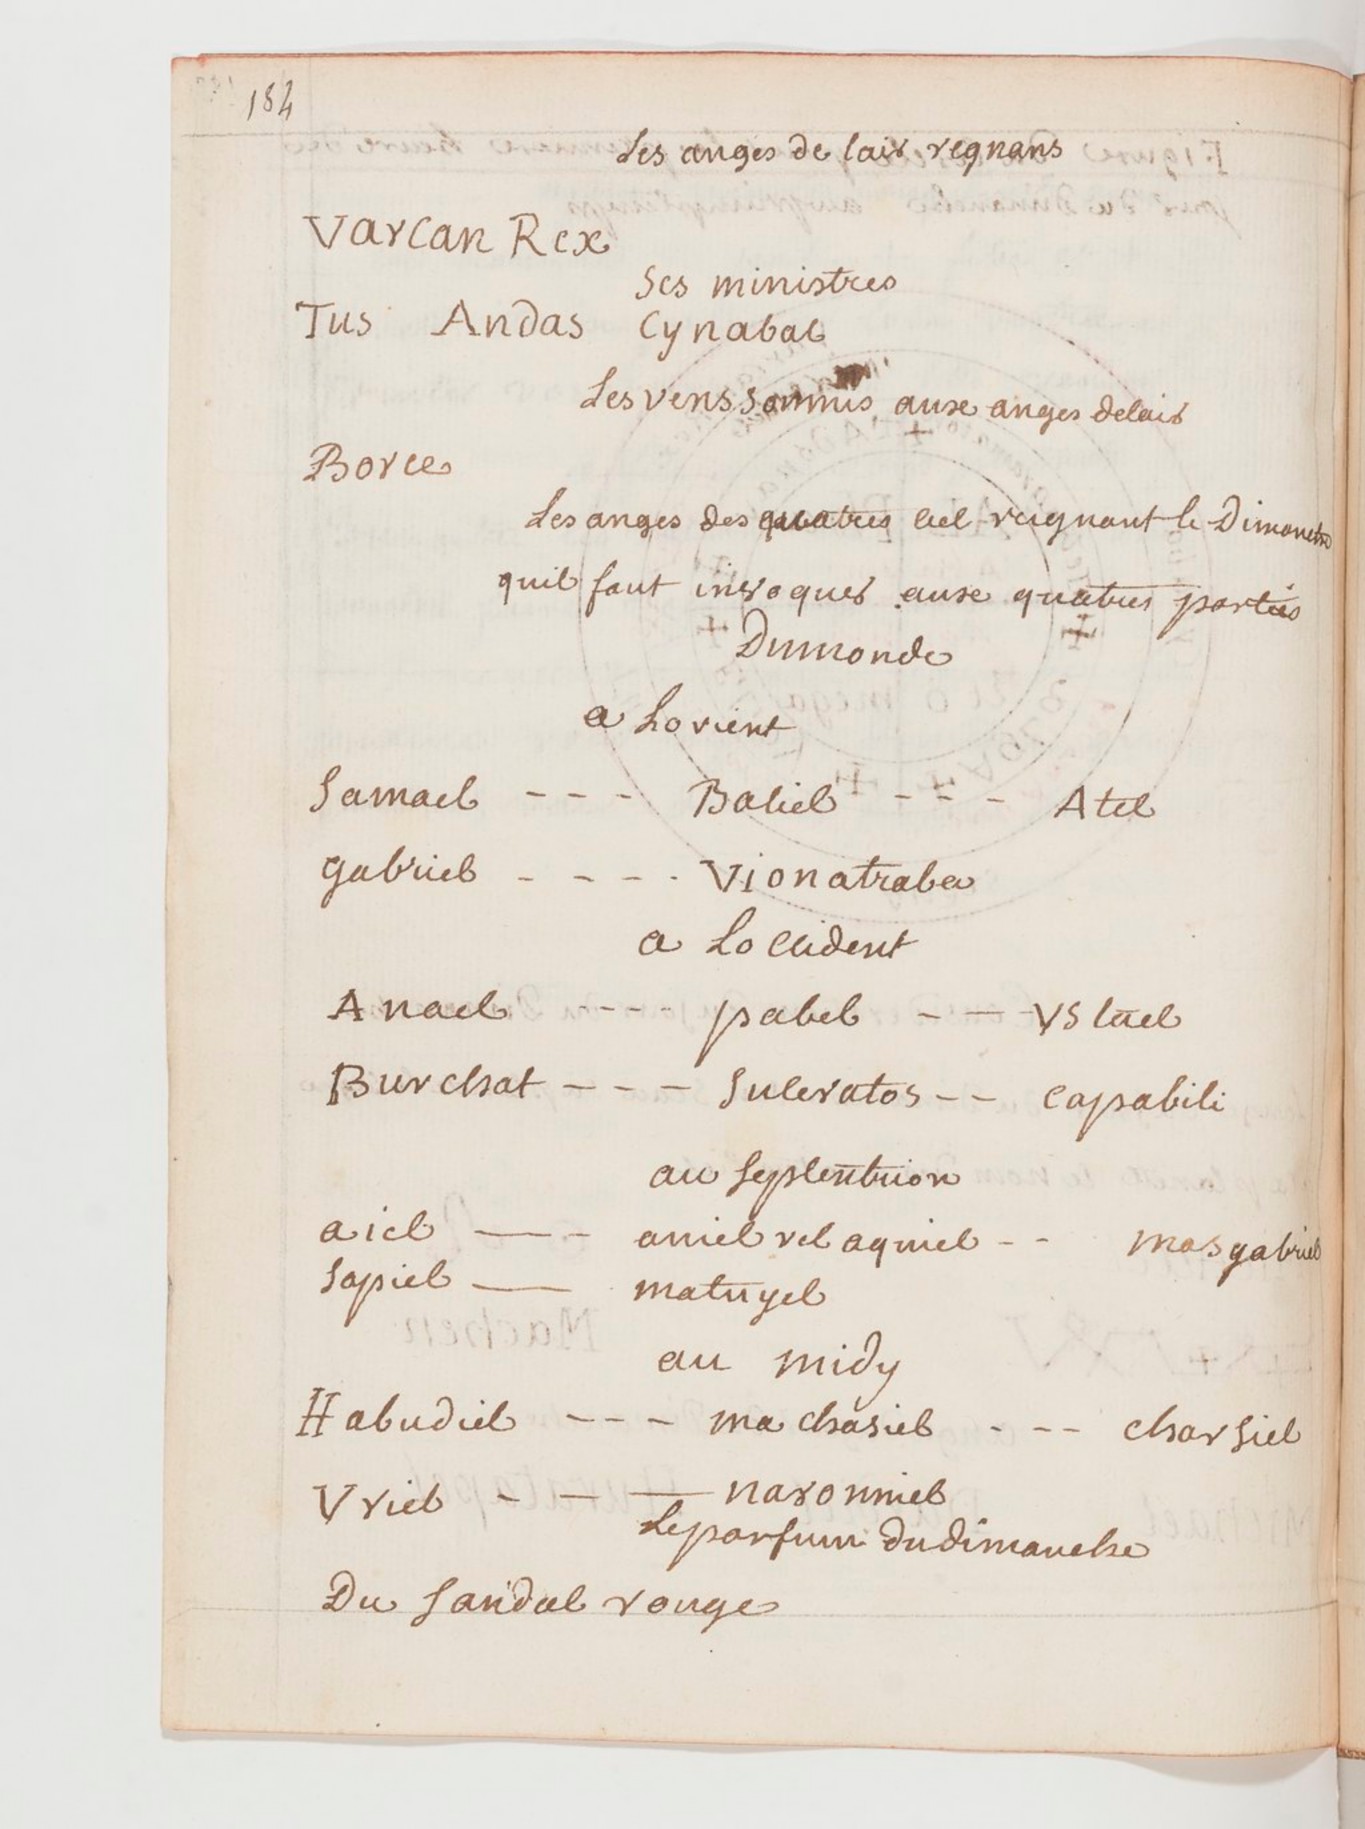 184
Les anges de lair regnans
Varcan Rex
Ses ministres
Tus Andas Cynabal
Les vens soumis auxe anges delair
Boree
Les anges des quatres ciel reignant le Dimanche
quil faut invoquer auxe quatres parties
Dumonde
a Lorient
Samael - - - Baliel - - - Atel
gabriel - - - - Vionatraba
a Loccident
Anael - - - pabel - - - Vstael
Burchat - - - Suceratos - - capabili
au Septentrion
aiel - - - aniel vel aquiel - - masgabriel
Sapiel - - matuyel
au midy
Habudiel - - - machasiel - - - charsiel
Vriel - - - naromiel
Le parfum du dimanche
Du Sandal rouge